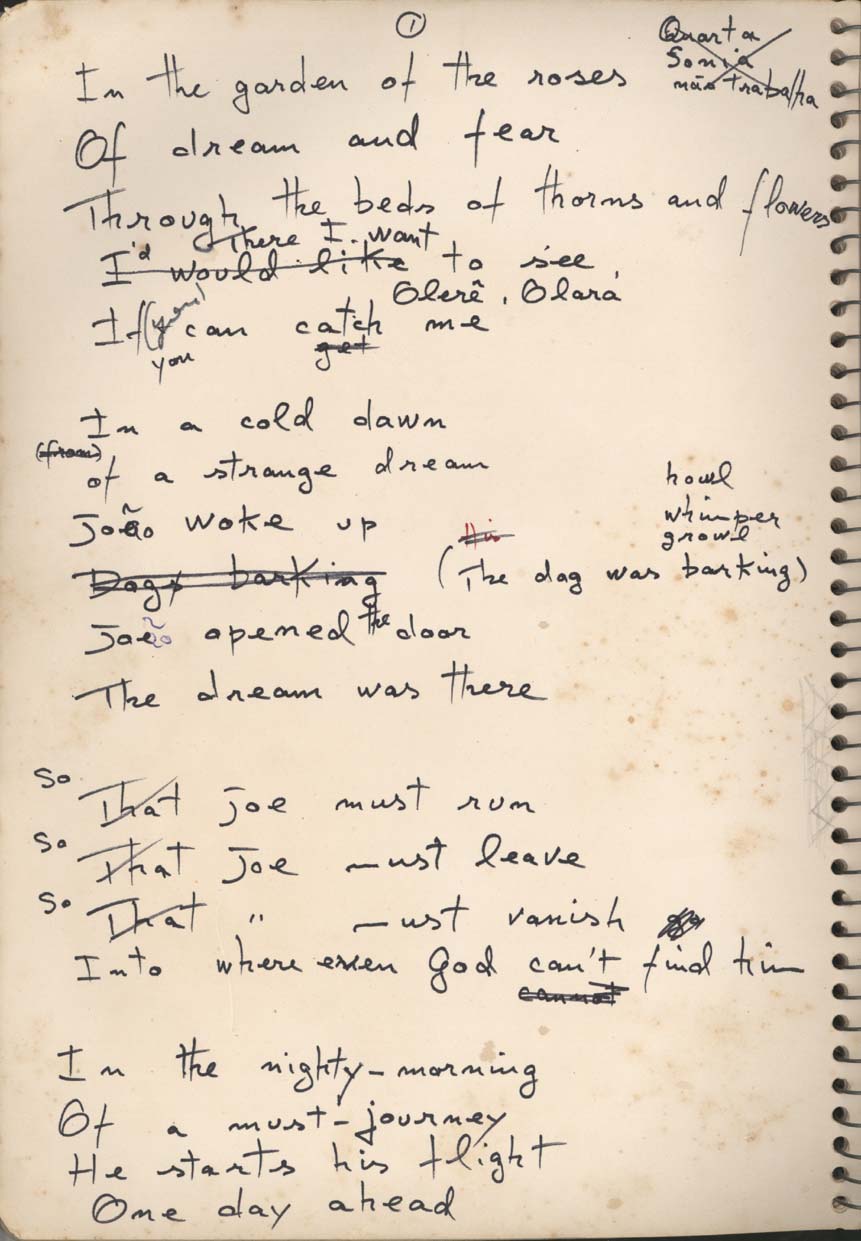 1
Quarta
Sonia
não trabalha
In the garden of the roses
Of dream and fear
Through the beds of thorns and flowers
There I want
I'd would like to see
Olerê, Olará
If (you) can catch me
you get
In a cold dawn
(from)
of a strange dream
howl
João woke up
whimper
His
growl
Dogs barking (The dog was barking)
João opened the door
The dream was there
So That Joe must run
So That Joe must leave
So That " must vanish
Into where even God can't find him
cannot
In the nighty-morning
Of a must-journey
He starts his flight
One day ahead